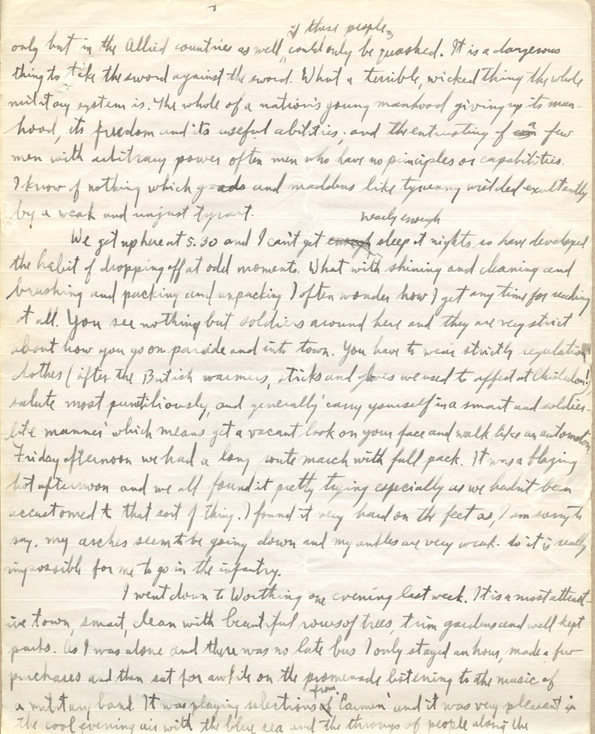 if these people
only but in the Allied countries as well, could only be quashed. It is a dangerous
thing to take the sword against the sword. What a terrible, wicked thing the whole
military system is. The whole of a nation's young manhood giving up its man-
hood, its freedom and its useful abilities; and the entrusting of a few
men with arbitrary power often men who have no principles or capabilities.
I know of nothing which goads and maddens like tyranny wielded exultantly
by a weak and unjust tyrant.
nearly enough
We get up here at 5.30 and I can't get enough sleep at nights, so have developed
the habit of dropping off at odd moments. What with shining and cleaning and
brushing and packing and unpacking I often wonder how I get any time for reading
at all. You see nothing but soldiers around here and they are very strict
about how you go on parade and into town. You have to wear strictly regulation
clothes (after the British warmers, sticks and gloves we used to affect at
salute most puntiliously, and generally carry yourself in a smart and soldier-
like manner which means get a vacant look on your face and walk like an automaton
Friday afternoon we had a long route march with full pack. It was a blazing
hot afternoon and we all found it pretty trying especially as we hadn't been
accustomed to that sort of thing. I found it very hard on the feet as, I am sorry to
say, my arches seem to be going down and my ankles are very weak. So it is really
impossible for me to go in the infantry.
I went down to Worthing one evening last week. It is a most attract-
ive town, smart, clean with beautiful rows of trees, trim gardens and well kept
parks. As I was alone and there was no late bus I only stayed an hour, made a few
purchases and then sat for awhile on the promenade listening to the music of
from
a military band. It was playing selections of 'Carmen' and it was very pleasant in
the cool evening air with the blue sea and the throngs of people along the